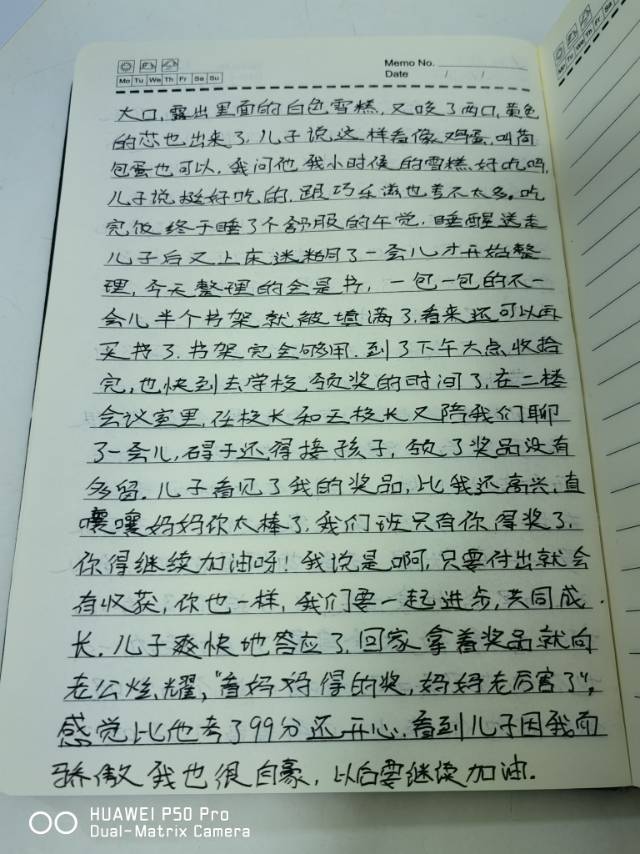 Memo No.
Mo Tu We Th Fr Sa Su
Date / /
大口,露出里面的白色雪糕,又咬了两口,黄色
的芯也出来了,儿子说这样看像鸡蛋,叫荷
包蛋也可以,我问他我小时候的雪糕好吃吗,
儿子说挺好吃的,跟巧乐滋也差不太多。吃
完饭终于睡了个舒服的午觉,睡醒送走
儿子后又上床迷糊了一会儿才开始整
理,今天整理的全是书,一包一包的不一
会儿半个书架就被填满了,看来还可以再
买书了,书架完全够用,到了下午六点收拾
完,也快到去学校领奖的时间了,在二楼
会议室里,任校长和王校长又陪我们聊
了一会儿,碍于还得接孩子,领了奖品没有
多留。儿子看见了我的奖品,比我还高兴,直
嚷嚷妈妈你太棒了,我们班只有你得奖了,
你得继续加油呀!我说是啊,只要付出就会
有收获,你也一样,我们要一起进步,共同成
长。儿子爽快地答应了,回家拿着奖品就向
老公炫耀,"看妈妈得的奖,妈妈老厉害了",
感觉比他考了99分还开心,看到儿子因我而
骄傲我也很自豪,以后要继续加油.
HUAWEI P50 Pro
Dual-Matrix Camera